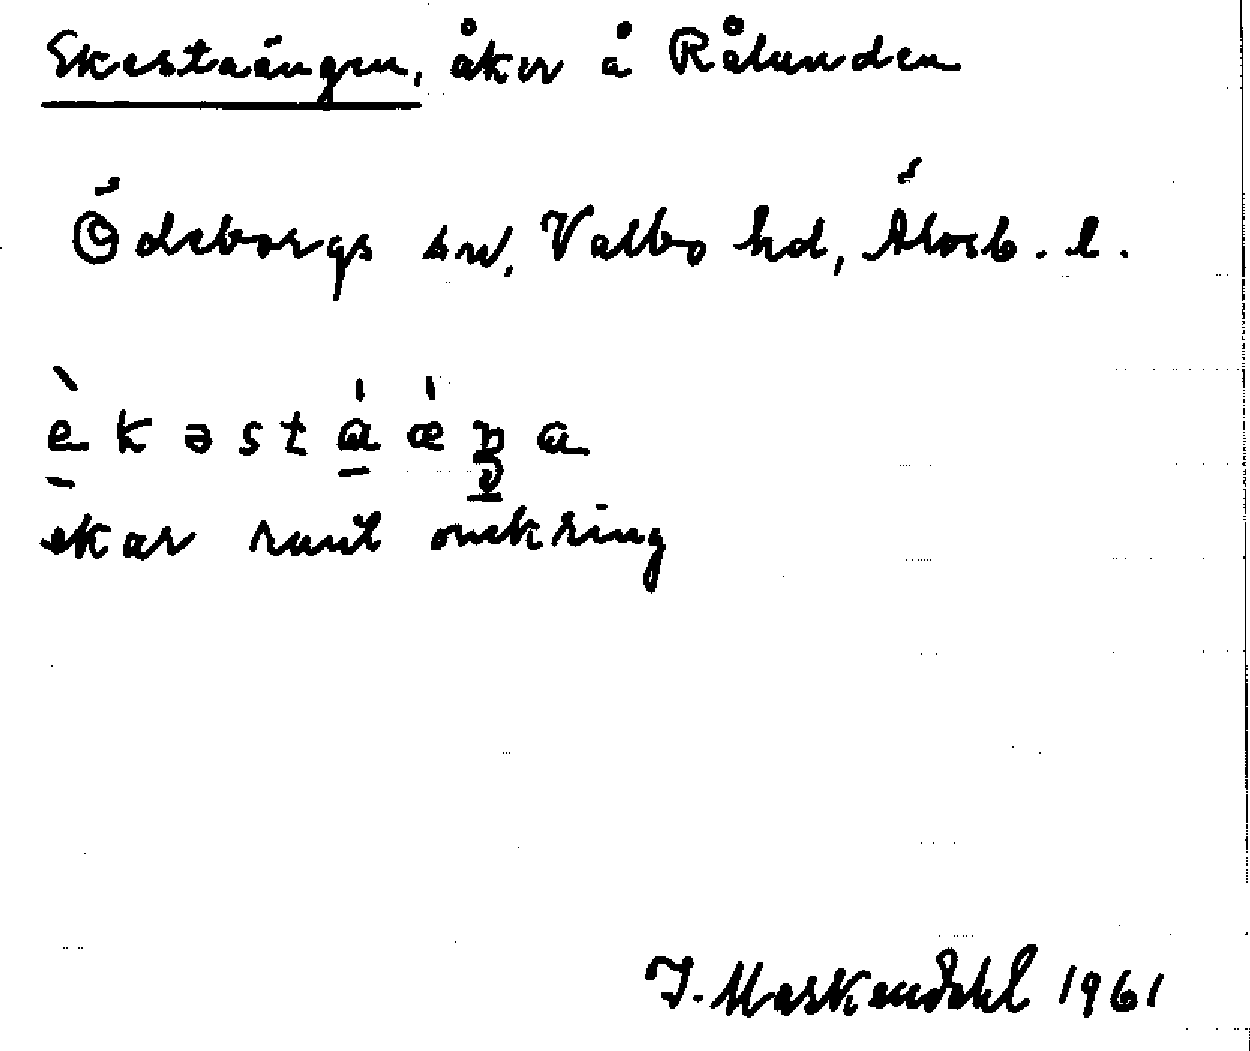 Ekestaängen, åker å Rålunden
Ödeborgs sn, Valbo hd, Älvsb. l.
èkəstáǽŋa
ekar runt omkring
J. Markendahl 1961